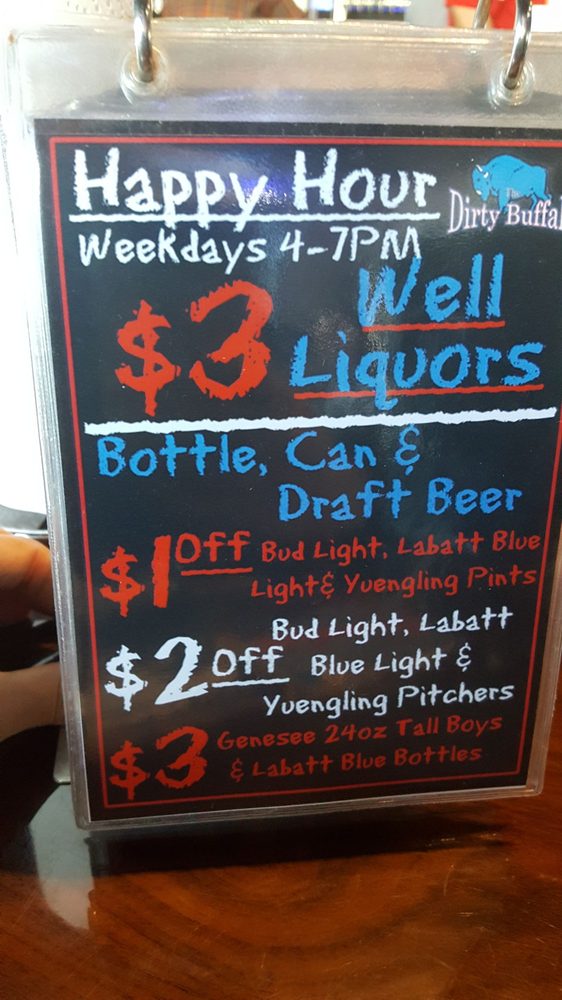 Happy Hour
The
Dirty Buffal
Weekdays 4-7PM
$3 Well
Liquors
Bottle, Can &
Draft Beer
$1 Off Bud Light, Labatt Blue
Light& Yuengling Pints
Bud Light, Labatt
$2 Off Blue Light &
Yuengling Pitchers
$3 Genesee 24oz Tall Boys
& Labatt Blue Bottles